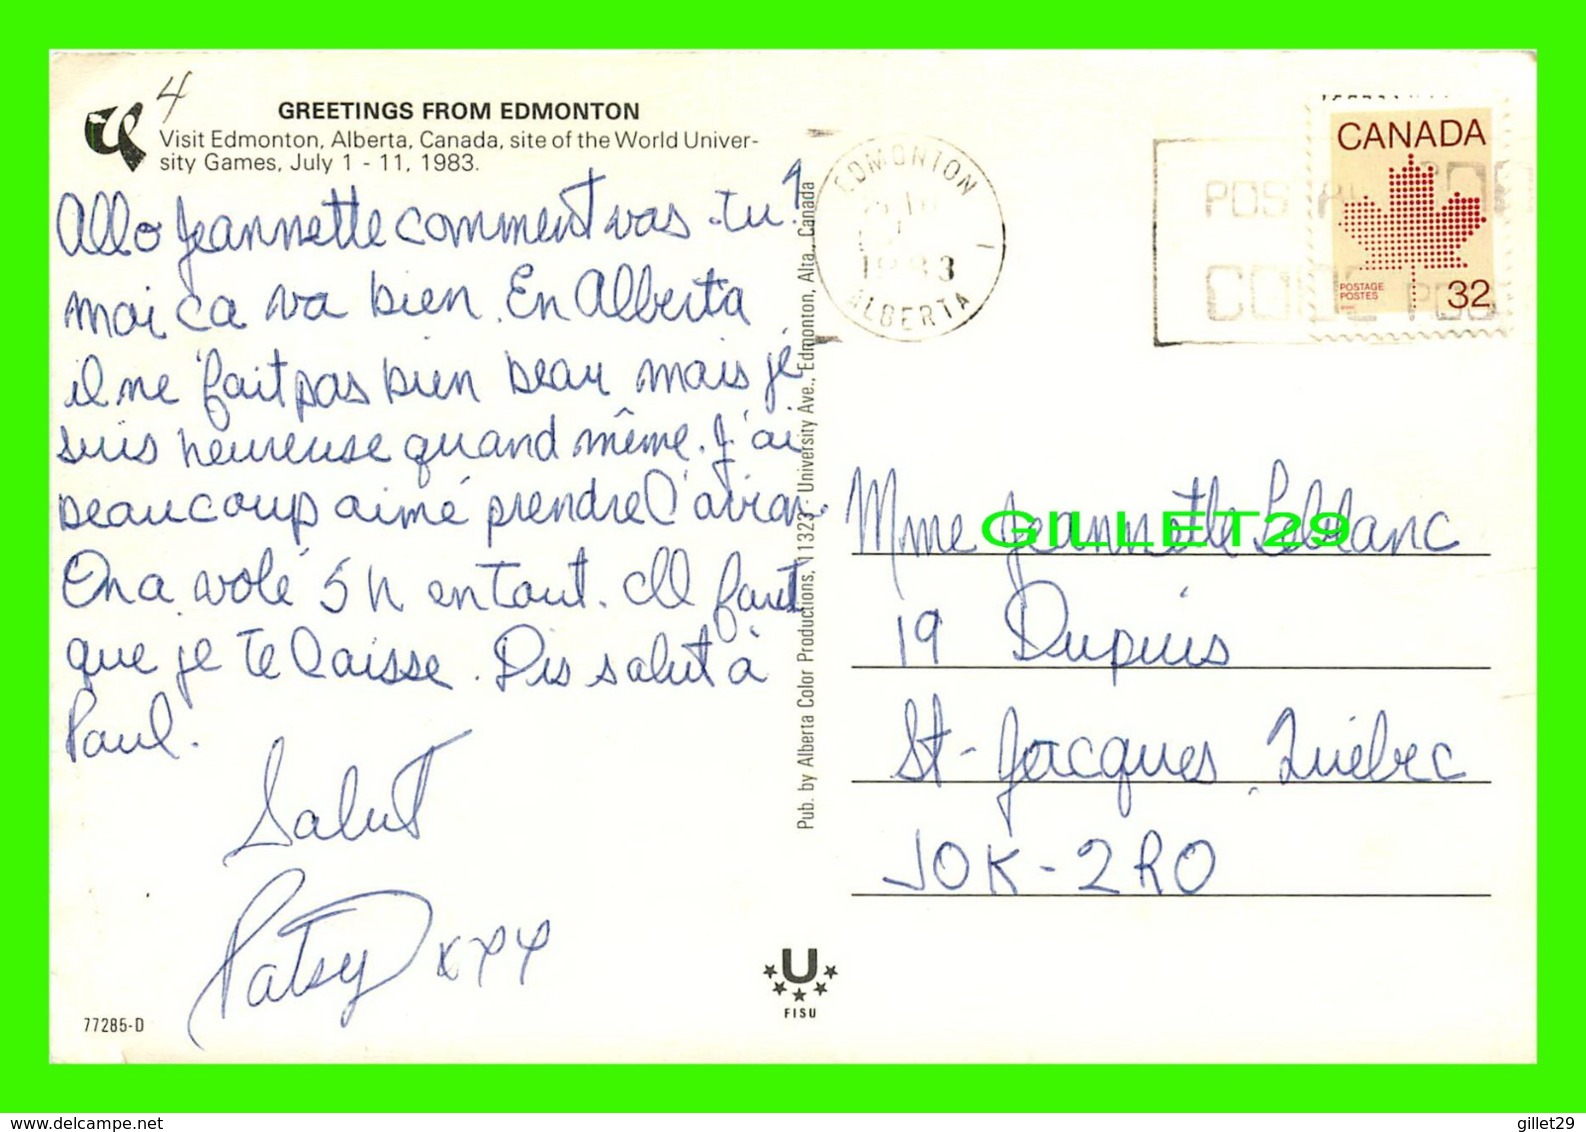 4
GREETINGS FROM EDMONTON
Visit Edmonton, Alberta, Canada, site of the World Univer-
sity Games, July 1 - 11, 1983.
Allo Jeannette comment vas-tu?
moi ca va bien. En Alberta
il ne fait pas bien beau mais je
suis heureuse quand même. J'ai
beaucoup aimé prendre l'avion.
On a volé 5 h en tout. Il faut
que je te laisse. Dis salut à
Paul.
Salut
Patsy xxx
77285-D
Pub. by Alberta Color Productions, 11323 - University Ave., Edmonton, Alta., Canada
U
FISU
EDMONTON
1983
ALBERTA
POSTAL
CODE POS
CANADA
POSTAGE
POSTES
32
Mme Jeannette Leblanc
GILLET29
19 Dupuis
St-Jacques, Québec
J0K-2R0
www.delcampe.net
gillet29